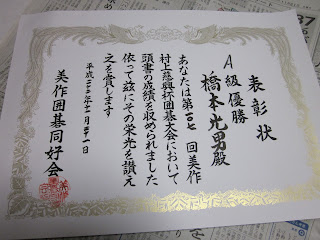 表彰状
A級優勝
橋本光男殿
あなたは第二七回美作
村上慈興杯囲碁大会において
頭書の成績を収められました
依って茲にその栄光を讃え
之を賞します
美作囲碁同好会